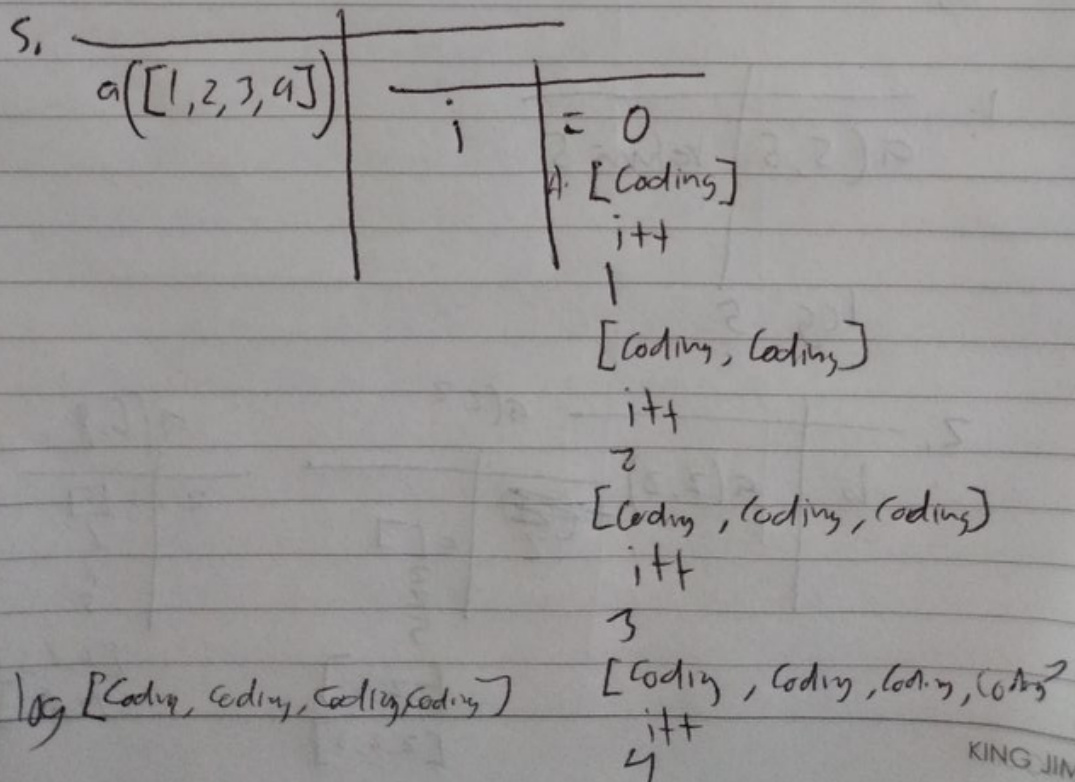 5.
a([1,2,3,4])
i = 0
[Coding]
i++
1
[Coding, Coding]
i++
2
[Coding, Coding, Coding]
i++
3
[Coding, Coding, Coding, Coding]
log [Coding, Coding, Coding, Coding]
i++
4
KING JIM